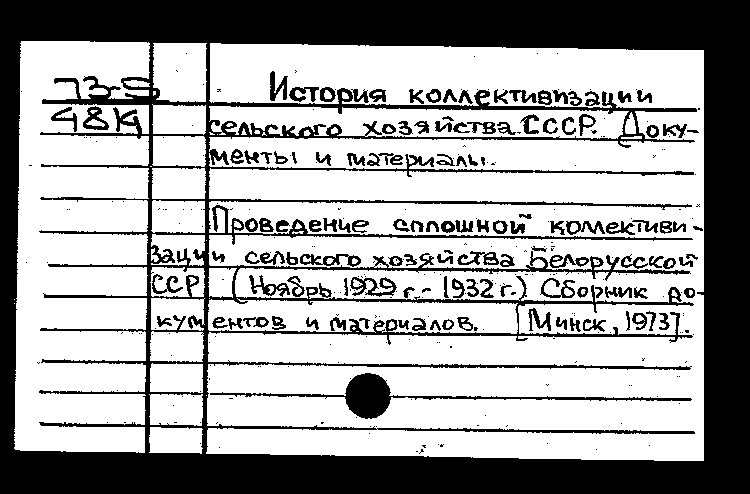 73-5
484
История коллективизации
сельского хозяйства СССР. Доку-
менты и материалы.
Проведение сплошной коллективи-
зации сельского хозяйства Белорусской
ССР (Ноябрь 1929 г. - 1932 г.) Сборник до-
кументов и материалов. [Минск, 1973].